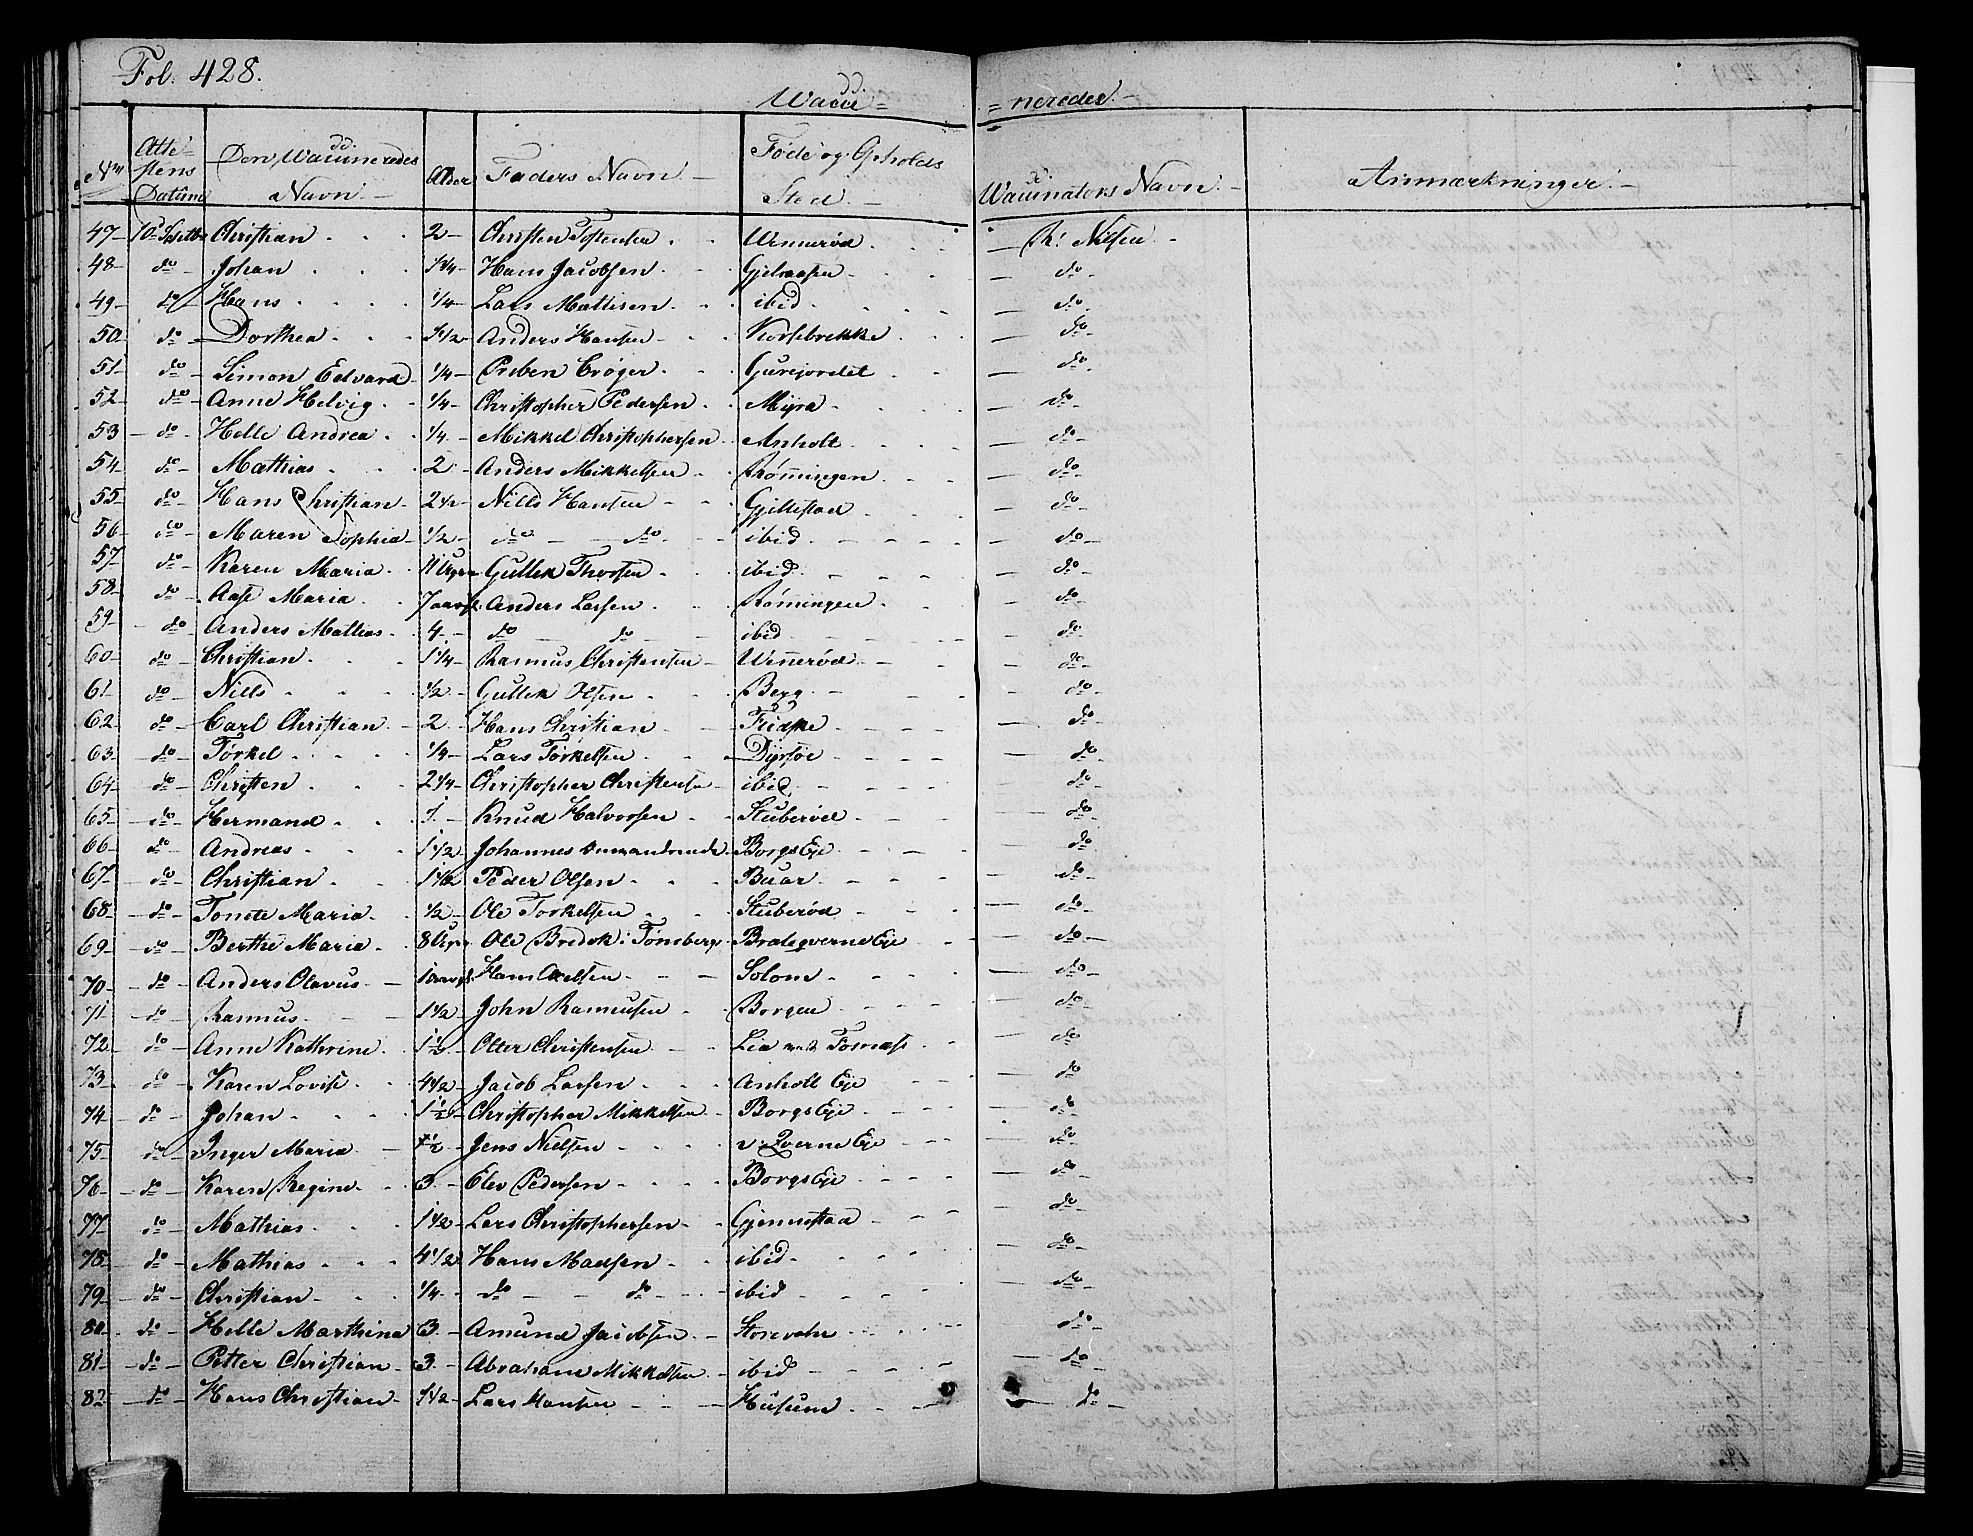 Fol. 428.
Wacci= =nerede.
No Atte=stens Datum Den Waccineredes Navn. Alder Faders Navn Føde og Opholds Sted. Waccinatørs Navn. Anmærkninger.
47 10 Septbr Christian 2 Christen Tostensen Winnerød R: Nilsen
48 do Johan 1 1/4 Hans Jacobsen Gjelsaasen do
49 do Hans 1/4 Lars Mattisen ibid do
50 do Dorthea 1 1/2 Anders Hansen Korsebrekke do
51 do Simon Edvard 1/4 Preben Crøger Gurejordet do
52 do Anne Helvig 1/4 Christopher Pedersen Myra do
53 do Helle Andrea 1/4 Mikkel Christophersen Anholt do
54 do Mathias 2 Anders Mikkelsen Rømmingen do
55 do Hans Christian 2 1/2 Nills Hansen Gjillestad do
56 do Maren Sophia 1/2 do do ibid do
57 do Karen Maria 11 Uger Gullek Thorsen ibid do
58 do Aase Maria 7 aar Anders Larsen Rømingen do
59 do Anders Mathias 4 do do ibid do
60 do Christian 1 1/4 Rasmus Christensen Winnerød do
61 do Nills 1/2 Gullek Olsen Berg do
62 do Carl Christian 2 Hans Christian do
63 do Tørkel 1/4 Lars Torkelsen Dyrsøe do
64 do Christen 2 1/4 Christopher Christensen ibid do
65 do Hermand 1 Knud Halvorsen Stuberød do
66 do Andreas 1 1/2 Johannes Borgs Eje do
67 do Christian 1 1/2 Peder Olsen Buar do
68 do Tomte Maria 1/2 Ole Torkelsen Stuberød do
69 do Berthe Maria 8 Uger Ole Bredok i Tønsberg Bratsqverne Eje do
70 do Anders Olavus 1 Hans Axelsen Solom do
71 do Rasmus 1 1/2 John Rasmusen Borgen do
72 do Anne Kathrine 1 1/2 Otter Christensen Lia do
73 do Karen Lovise 4 1/2 Jacob Larsen Anholt Eje do
74 do Johan 1 1/2 Christopher Mikkelsen Borgs Eje do
75 do Inger Maria 1/2 Jens Nielsen Qverne Eje do
76 do Karen Regine 3 Elev Pedersen Borgs Eje do
77 do Mathias 1 1/2 Lars Christophersen Gjennestad do
78 do Mathias 4 1/2 Hans Madsen ibid do
79 do Christian 1/4 do do ibid do
80 do Helle Marthina 3 Amund Jacobsen Storevahr do
81 do Petter Christian 3 Abraham Mikkelsen ibid do
82 do Hans Christian 1 1/2 Lars Hansen Husum do